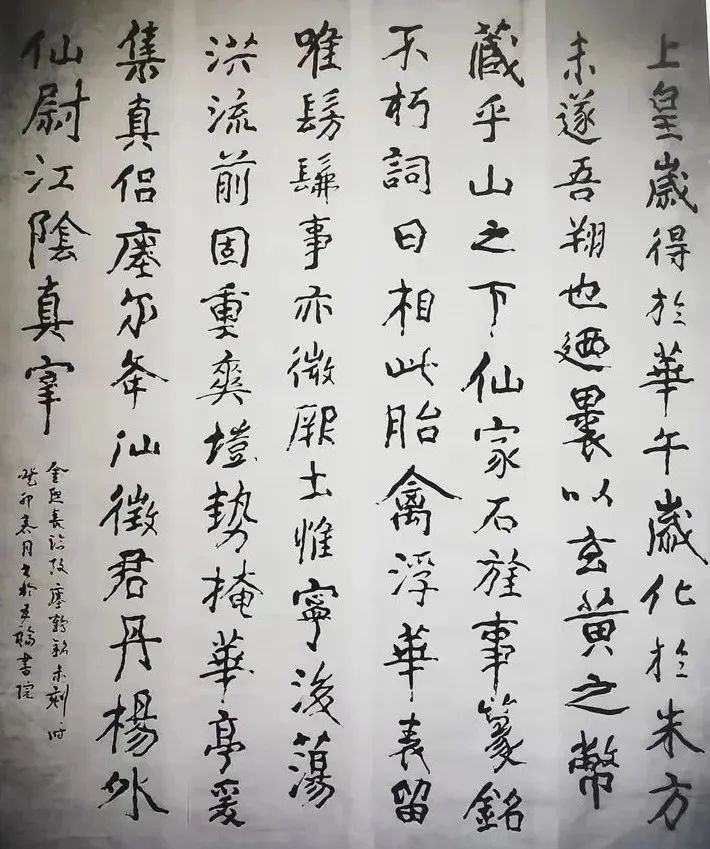 上皇歲得於華午歲化於朱方
未遂吾翔也迺裹以玄黄之幣
藏乎山之下仙家石旌事篆銘
不朽詞曰相此胎禽浮華表留
唯髣髴事亦微厥土惟寧後蕩
洪流前固重爽塏勢掩華亭爰
集真侣瘞尔峯山徵君丹楊外
仙尉江陰真宰
癸卯春月書於書院